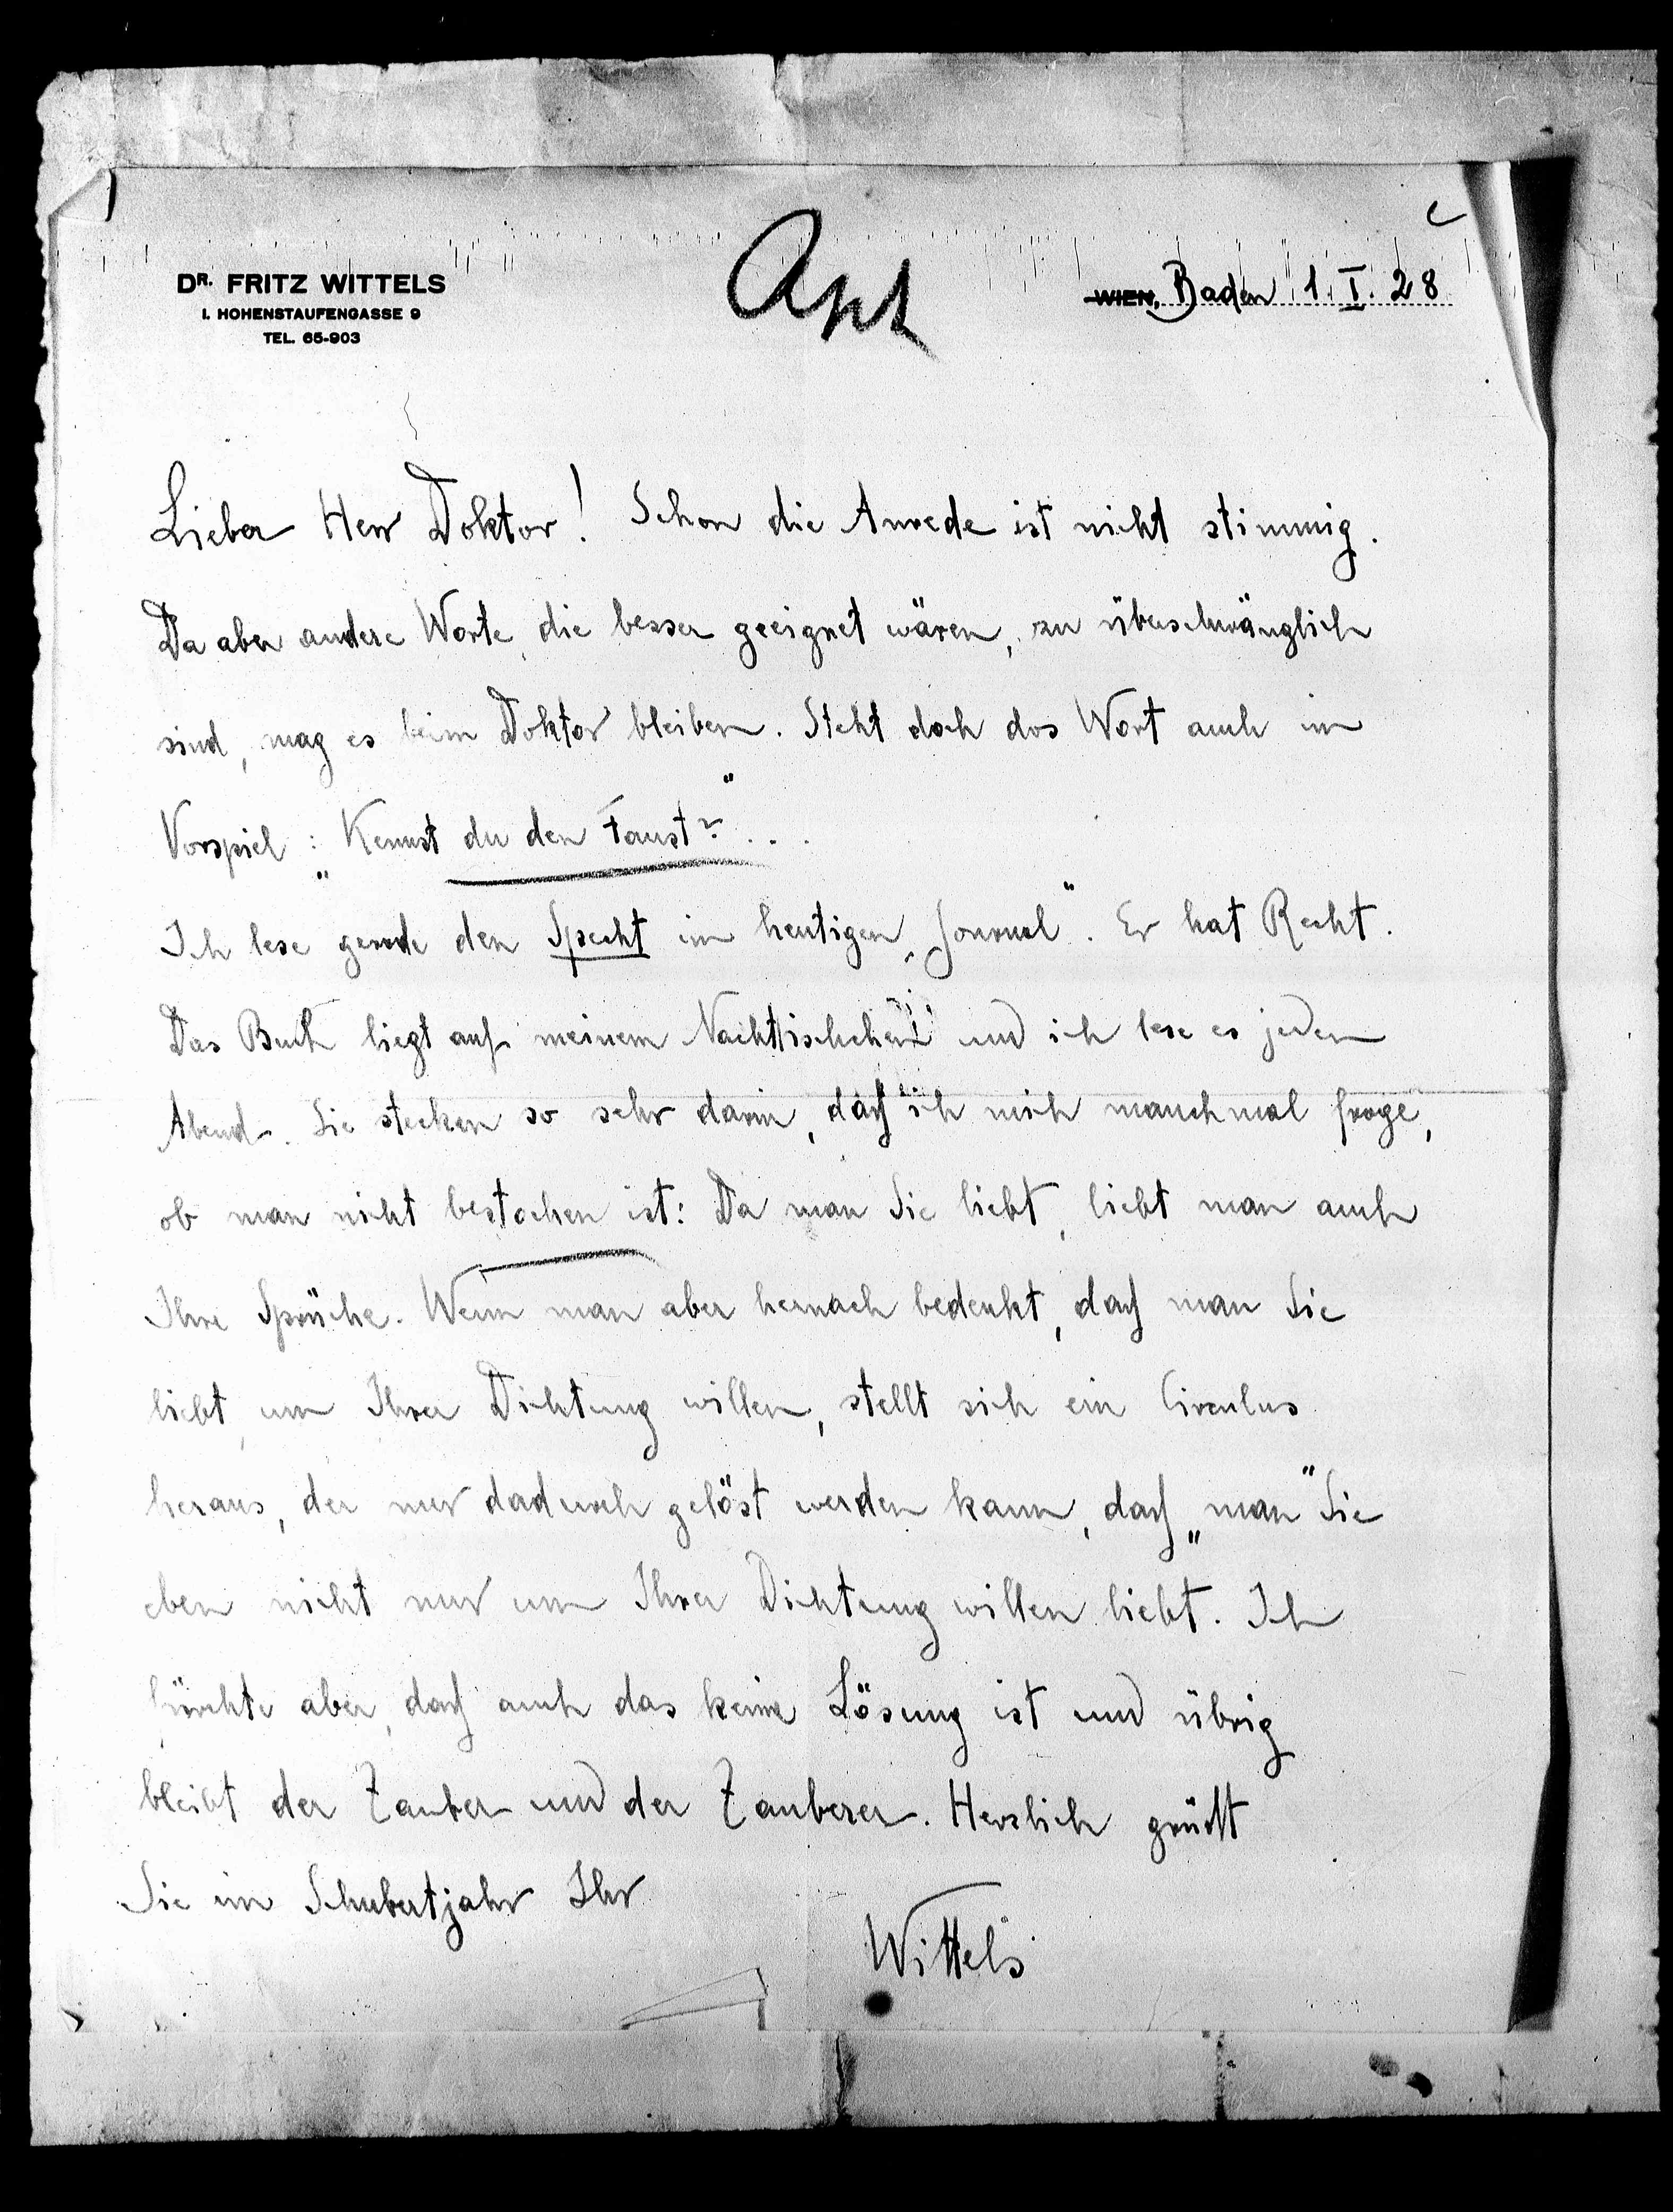 DR. FRITZ WITTELS
I. HOHENSTAUFENGASSE 9
TEL. 65-903
WIEN, Baden 1. I. 28
Lieber Herr Doktor! Schon die Anrede ist nicht stimmig.
Da aber andere Worte, die besser geeignet wären, zu überschwänglich
sind, mag es beim Doktor bleiben. Steht doch das Wort auch im
Vorspiel: „Kennst du den Faust?" . . .
Ich lese gerade den Specht im heutigen „Journal". Er hat Recht.
Das Buch liegt auf meinem Nachttischchen und ich lese es jeden
Abend. Sie stecken so sehr darin, daß ich mich manchmal frage,
ob man nicht bestochen ist: Da man Sie liebt, liebt man auch
Ihre Sprüche. Wenn man aber hernach bedenkt, daß man Sie
liebt, um Ihrer Dichtung willen, stellt sich ein Circulus
heraus, der nur dadurch gelöst werden kann, daß „man" Sie
eben nicht nur um Ihrer Dichtung willen liebt. Ich
fürchte aber, daß auch das keine Lösung ist und übrig
bleibt der Zauber und der Zauberer. Herzlich grüßt
Sie im Schubertjahr Ihr
Wittels